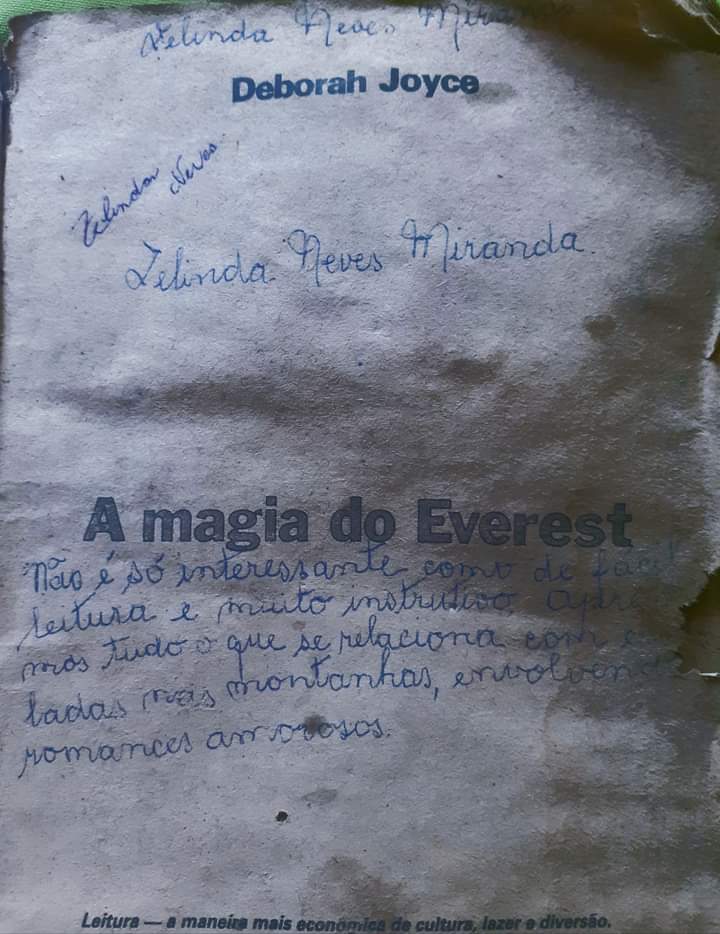 Zelinda Neves Miranda
Deborah Joyce
Zelinda Neves
Zelinda Neves Miranda.
A magia do Everest
Não é só interessante como de fácil
leitura e muito instrutivo.
mos tudo o que se relaciona com
ladas nas montanhas, envolvendo
romances amorosos.
Leitura — a maneira mais econômica de cultura, lazer e diversão.